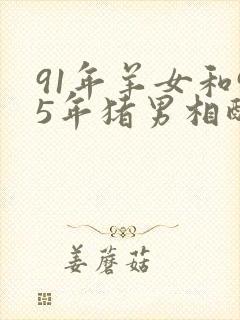 91年羊女和
5年猪男相
姜蘑菇